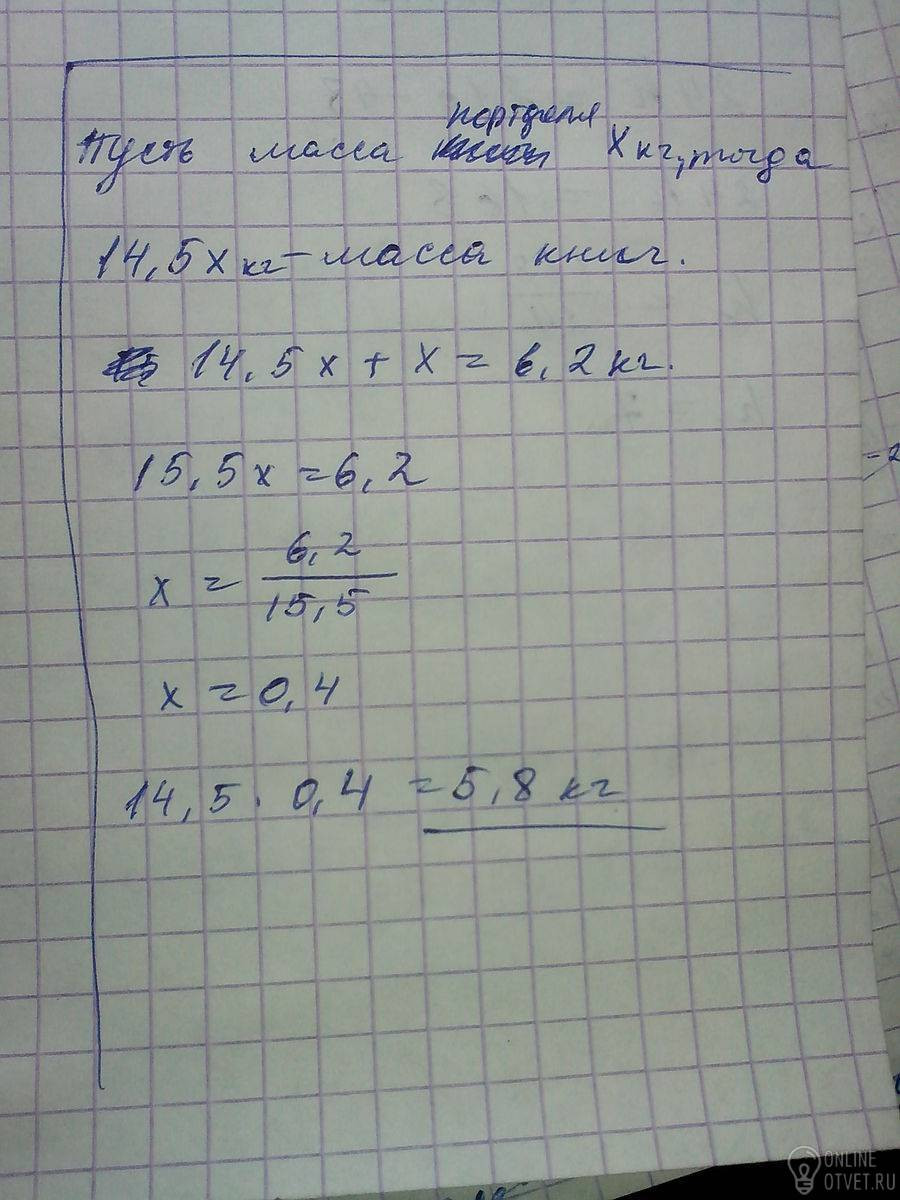 Пусть масса портфеля X кг, тогда
14,5x кг – масса книг.
14,5x + x = 6,2 кг.
15,5x = 6,2
x = 6,2 / 15,5
x = 0,4
14,5 · 0,4 = 5,8 кг
= 2
ONLINE
OTVET.RU